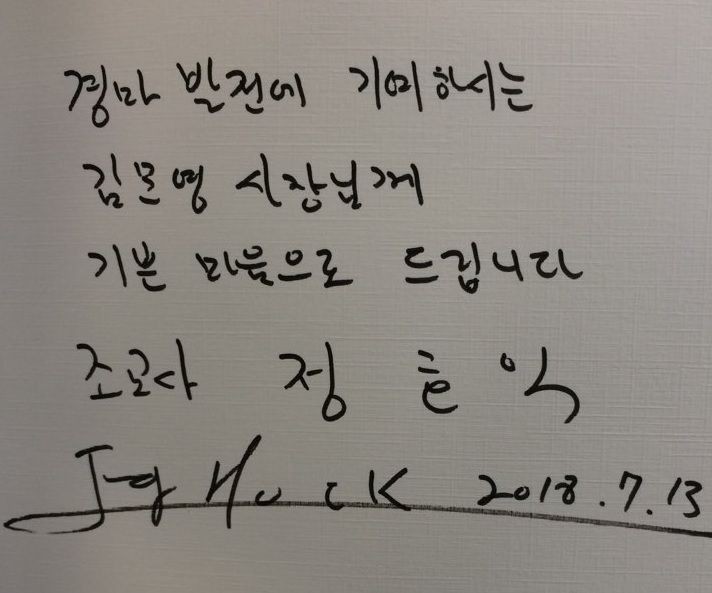 경마 발전에 기여하시는
김문영 사장님께
기쁜 마음으로 드립니다
조교사 정 호 익
2018.7.13